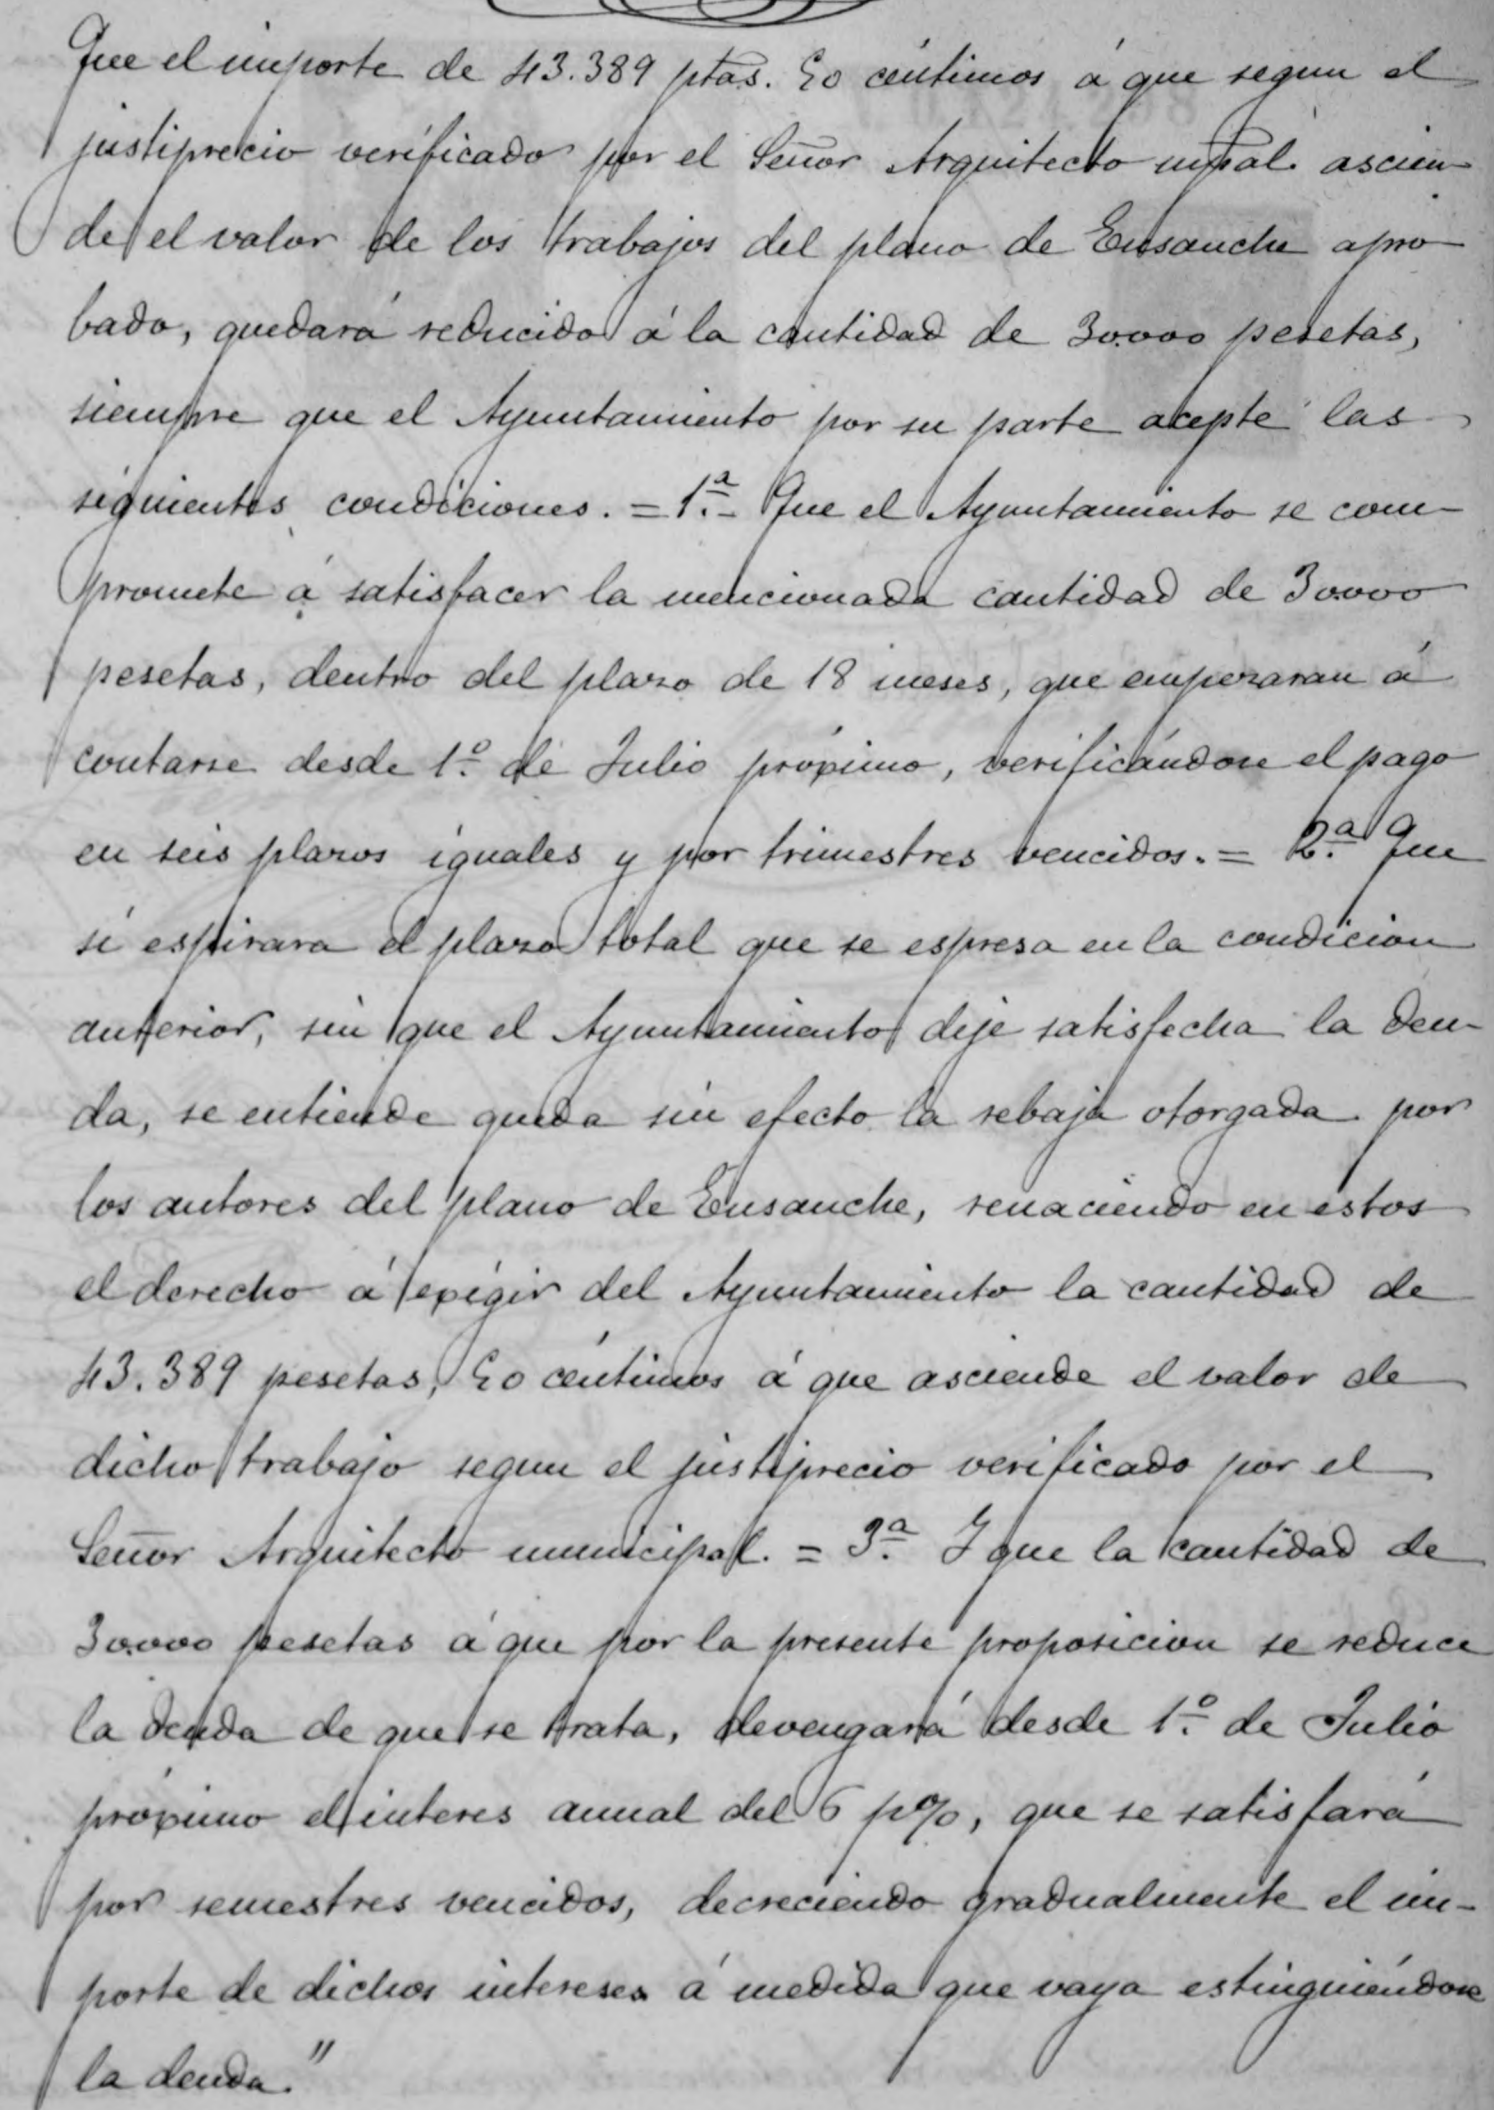 Que el importe de 43.389 ptas. 50 céntimos á que segun el
justiprecio verificado por el Señor Arquitecto mpal. ascien-
de el valor de los trabajos del plano de Ensanche apro-
bado, quedará reducido á la cantidad de 30.000 pesetas,
siempre que el Ayuntamiento por su parte acepte las
siguientes condiciones. = 1.ª - Que el Ayuntamiento se com-
promete á satisfacer la mencionada cantidad de 30.000
pesetas, dentro del plazo de 18 meses, que empezaran á
contarse desde 1.º de Julio próximo, verificándose el pago
en seis plazos iguales y por trimestres vencidos. = 2.ª Que
si espirara el plazo total que se espresa en la condicion
anterior, sin que el Ayuntamiento deje satisfecha la deu-
da, se entiende queda sin efecto la rebaja otorgada por
los autores del plano de Ensanche, renaciendo en estos
el derecho á exigir del Ayuntamiento la cantidad de
43.389 pesetas, 50 céntimos á que asciende el valor de
dicho trabajo segun el justiprecio verificado por el
Señor Arquitecto municipal. = 3.ª Y que la cantidad de
30.000 pesetas á que por la presente proposicion se reduce
la deuda de que se trata, devengará desde 1.º de Julio
próximo el interes anual del 6 p%, que se satisfará
por semestres vencidos, decreciendo gradualmente el im-
porte de dichos intereses á medida que vaya estinguiéndose
la deuda."